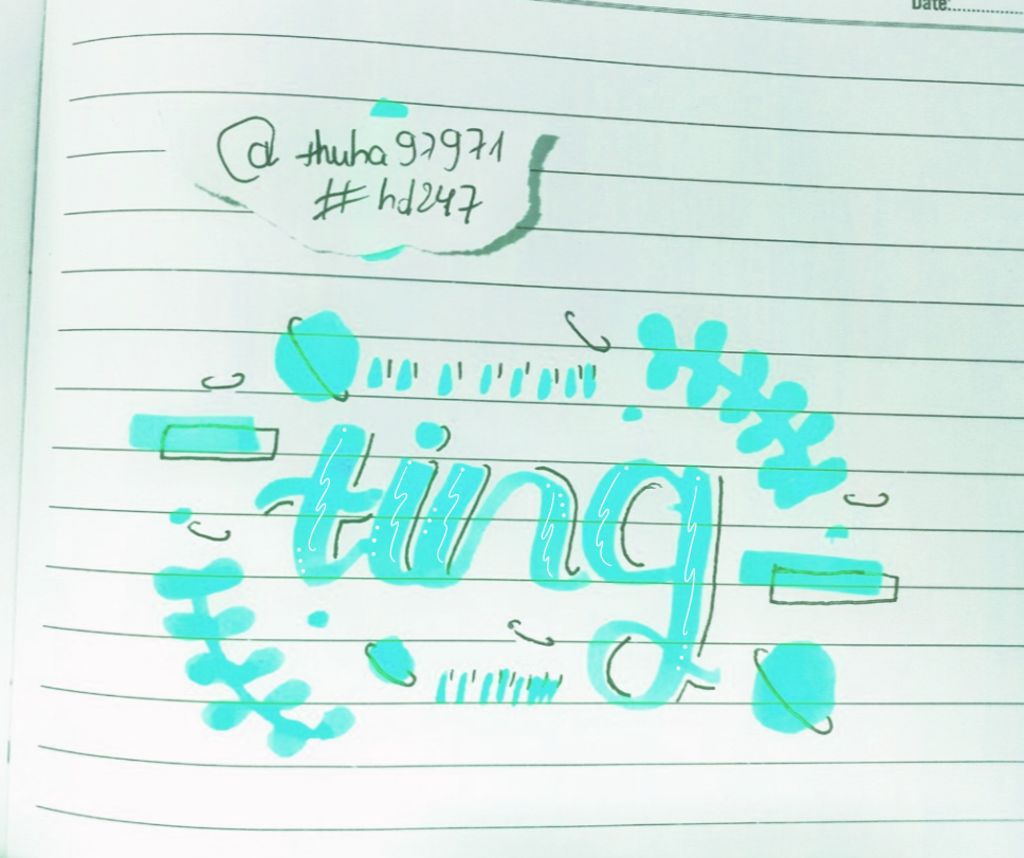 Date:
@thuha97971
#hd247
ting